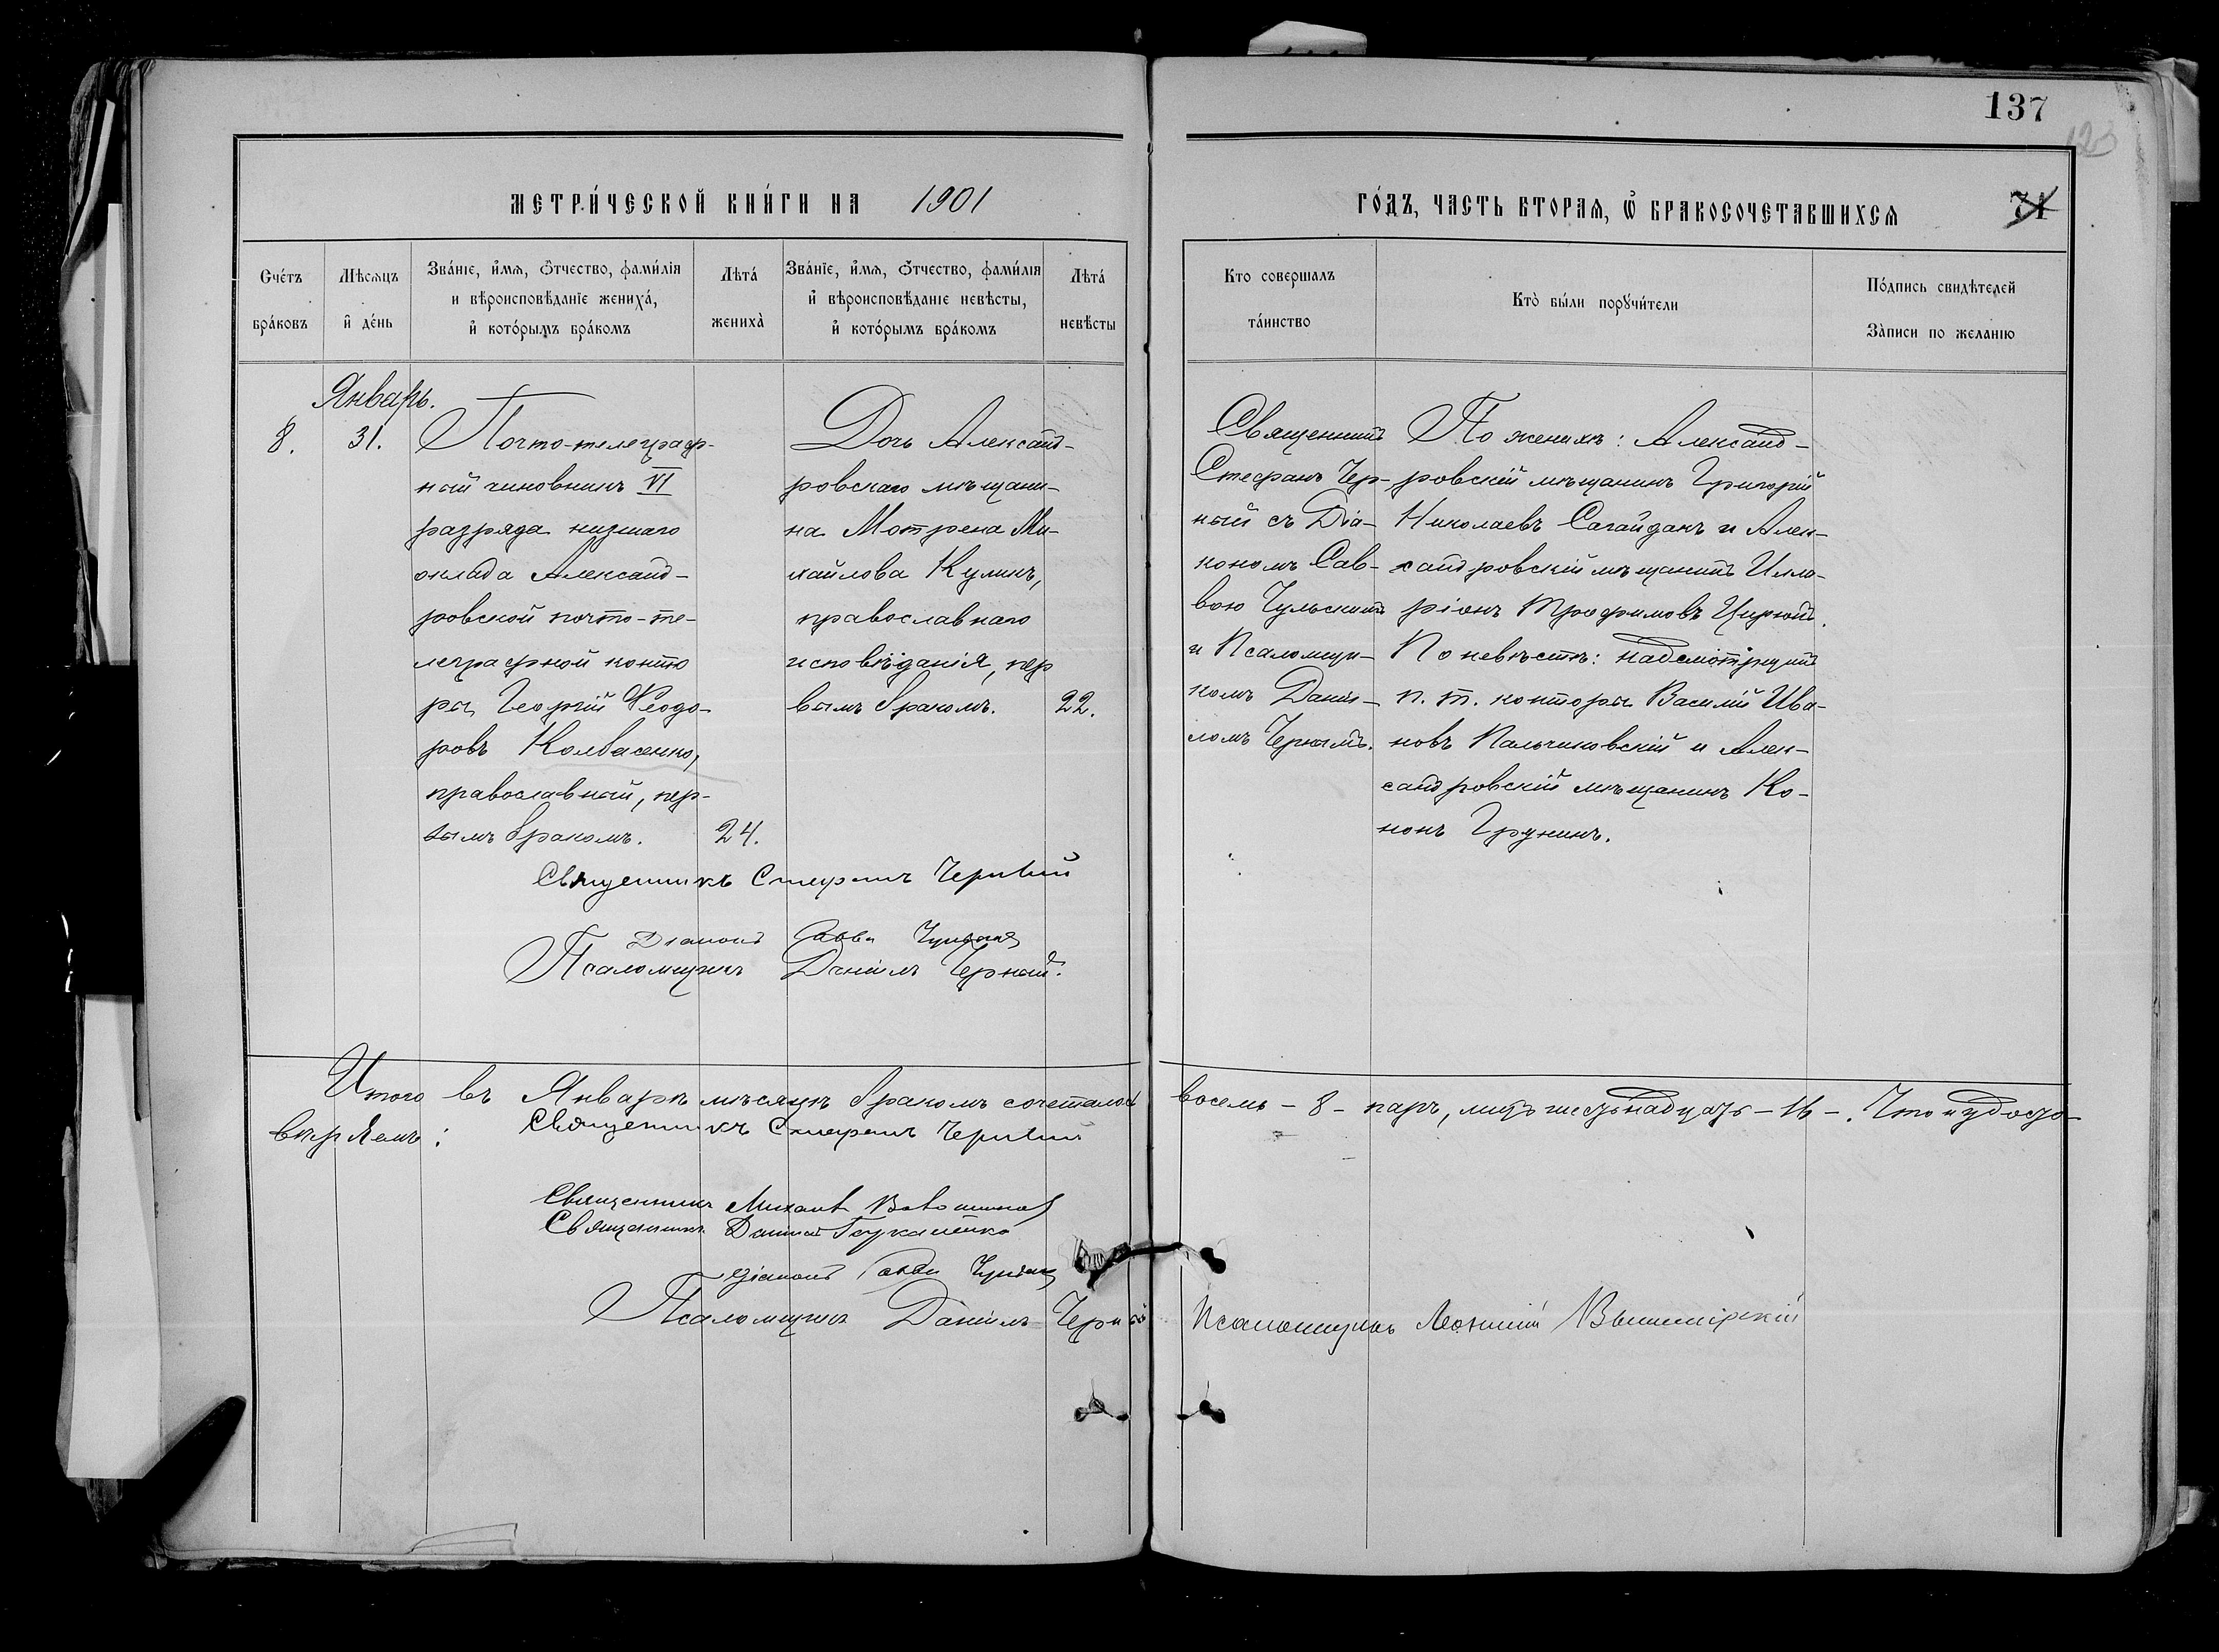 137
123
МЕТРИ́ЧЕСКОЙ КНИ́ГИ НА 1901
ГО́ДЪ, ЧАСТЬ ВТОРАѦ, Ѡ҆ БРАКОСОЧЕТАВШИХСѦ
71
Счéтъ брáковъ
Мѣ́сяцъ и҆ дéнь
Звáнїе, и҆́мѧ, ѻ҆́тчество, фами́лїѧ
и вѣроисповѣ́данїе женихá,
и҆ котóрымъ брáкомъ
Лѣтá женихà
Звáнїе, и҆́мѧ, ѻ҆́тчество, фами́лїѧ
и҆ вѣроисповѣ́данїе невѣ́сты,
и҆ котóрымъ брáкомъ
Лѣтá невѣ́сты
Кто совершалъ тáинство
Ктò бы́ли порꙋчи́тели
Пóдпись свидѣ́телей
Зàписи по желанїю
Январь.
8.
31.
Почто-телеграф-
ный чиновникъ VI
разряда низшаго
оклада Александ-
ровской почто-те-
леграфной конто
ры Георгій Ѳеодо-
ровъ Колбасенко,
православный, пер-
вымъ бракомъ.
24.
Дочь Александ-
ровскаго мѣщани-
на Мотрена Ми-
хайлова Куликъ,
православнаго
исповѣданія, пер
вымъ бракомъ.
22.
Священникъ
Стефанъ Чер-
ный съ Діа-
кономъ Сав-
вою Чульскимъ
и Псаломщи-
комъ Дані-
ломъ Чернымъ.
По женихѣ: Александ-
ровскій мѣщанинъ Григорій
Николаевъ Сагайдакъ и Алек-
сандровскій мѣщанинъ Илла-
ріонъ Трофимовъ
По невѣстѣ: надсмотрщикъ
п. т. конторы Василій Ива-
новъ Пальчиковскій и Алек-
сандровскій мѣщанинъ Ко-
нонъ Грунинъ.
Священникъ Стефанъ Черный
Діаконъ Савва Чульскій
Псаломщикъ Даніилъ Черный.
Итого въ Январѣ мѣсяцѣ бракомъ сочеталось восемь - 8 - паръ, лицъ шестьнадцать - 16 -. Что и удосто-
вѣряемъ:
Священникъ Стефанъ Черный
Священникъ Михаилъ
Священникъ Даніилъ
Діаконъ Савва Чульскій
Псаломщикъ Даніилъ Черный
Псаломщикъ Леонтій